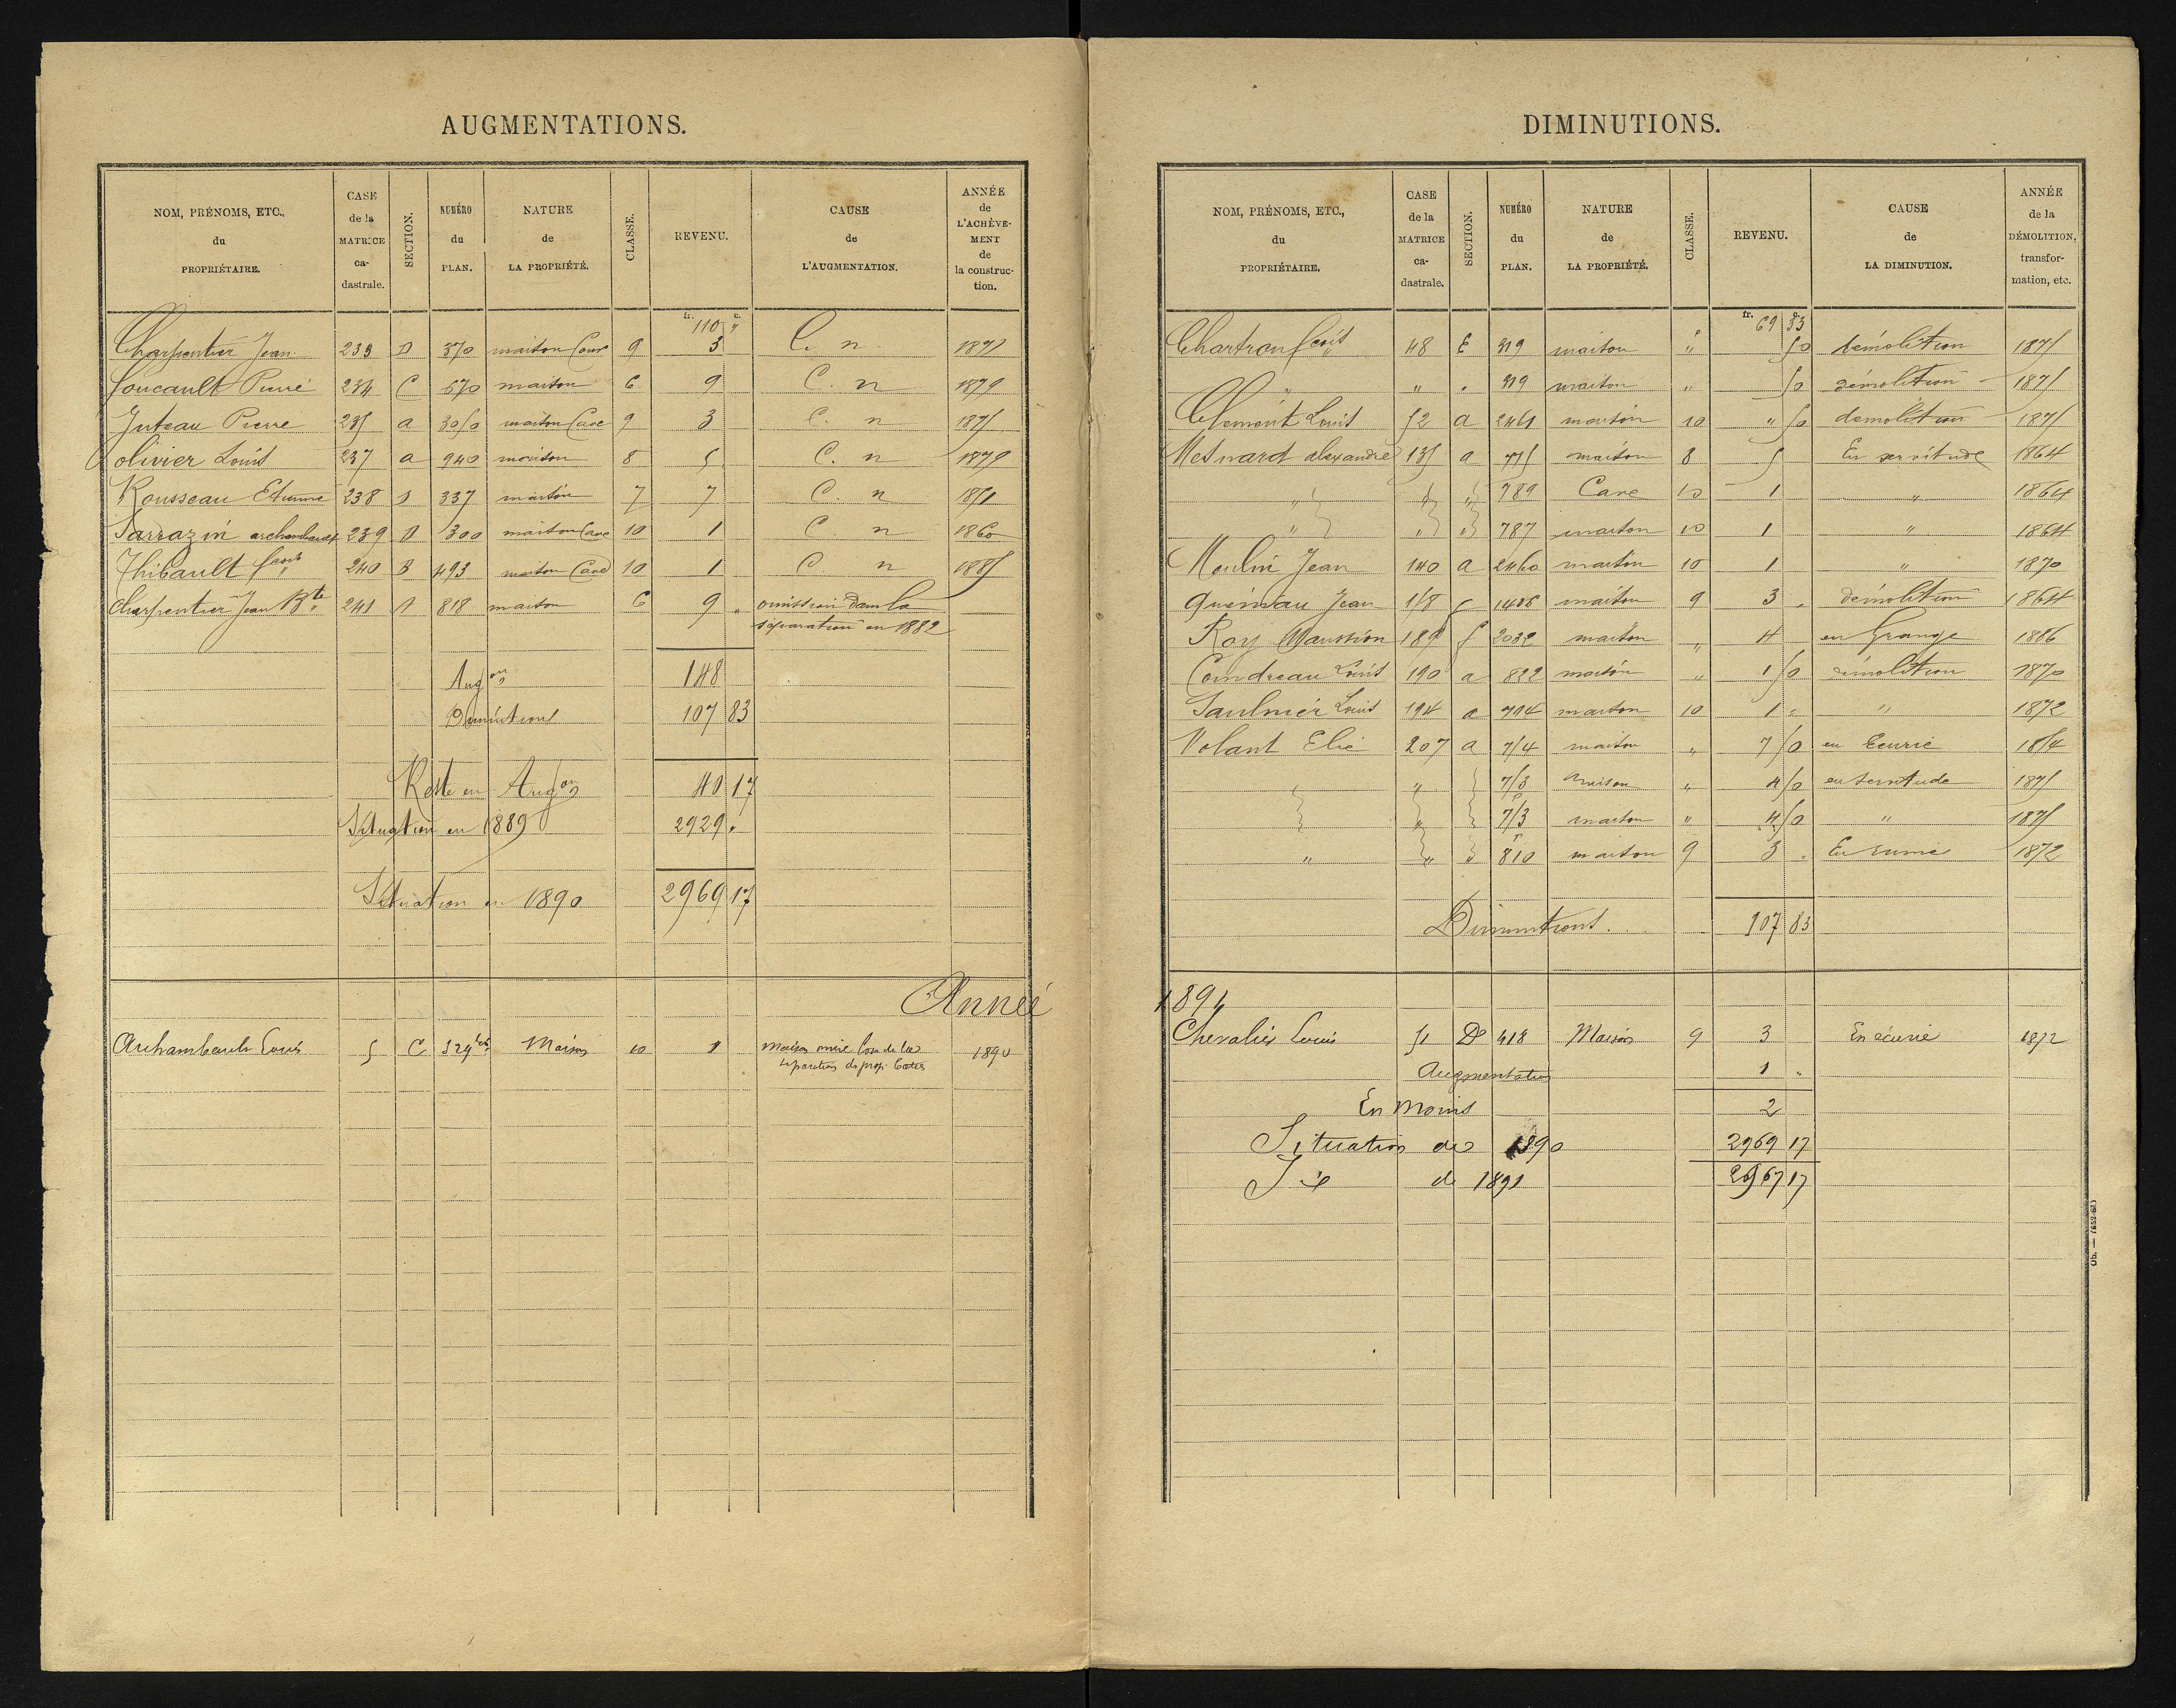 AUGMENTATIONS.
NOM, PRÉNOMS, ETC., du PROPRIÉTAIRE. CASE de la MATRICE ca- dastrale. SECTION. NUMÉRO du PLAN. NATURE de LA PROPRIÉTÉ. CLASSE. REVENU. CAUSE de L'AUGMENTATION. ANNÉE de L'ACHÈVE- MENT de la construc- tion.
fr. c.
110 "
Charpentier Jean 233 D 370 maison Cour 9 3 C. n
Foucault Pierre 234 C 670 maison 6 9 C. n 1879
Juteau Pierre 235 a 3050 maison Cave 9 3 C. n 1875
Olivier Louis 237 a 940 maison 8 5 C. n 1879
Rousseau Etienne 238 D 337 maison 7 7 C. n 1851
Sarrazin archambault 239 D 300 maison Cave 10 1 C n 1860
Thibault fcois 240 B 493 maison Cave 10 1 C n 1885
Charpentier Jean Bte 241 A 818 maison 6 9 " omission dans la
séparation en 1882
Augons 148
Diminutions 107 83
Reste en Augons 40 17
Situation en 1889 2929 "
Situation en 1890 2969 17
Année
Archambault Louis 5 C 329 bis Maison 10 1 Maison omise lors de la 1890
séparation des prop. baties
DIMINUTIONS.
NOM, PRÉNOMS, ETC., du PROPRIÉTAIRE. CASE de la MATRICE ca- dastrale. SECTION. NUMÉRO du PLAN. NATURE de LA PROPRIÉTÉ. CLASSE. REVENU. CAUSE de LA DIMINUTION. ANNÉE de la DÉMOLITION, transfor- mation, etc.
fr. c.
69 33
Chartron fcois 48 E 319 maison " 50 démolition 1875
" " " 319 maison " 50 démolition 1875
Clement Louis 52 a 2461 maison 10 " 50 démolition 1875
Mesnard alexandre 135 a 775 maison 8 5 En servitude 1864
" " " 789 Cave 10 1 " 1864
" " " 787 maison 10 1 " 1864
Moulin Jean 140 a 2460 maison 10 1 " 1870
Quéniau Jean 158 C 1406 maison 9 3 " démolition 1864
Roy Maussion 189 f 2032 maison " 4 en Grange 1886
Coindreau Louis 190 a 822 maison " 1 50 démolition 1870
Saulnier Louis 194 a 794 maison 10 1 " " 1872
Volant Elie 207 a 754 maison " 7 50 en Ecurie 1854
" " 753 maison " 4 50 en servitude 1875
" 753 maison " 4 50 " 1875
" " " 810 maison 9 3 " En ruine 1872
Diminutions. 107 83
1891
Chevalier Louis 51 D 418 Maison 9 3 En écurie 1872
Augmentation 1 "
En moins 2
Situation de 1890 2969 17
de 1891 2967 17